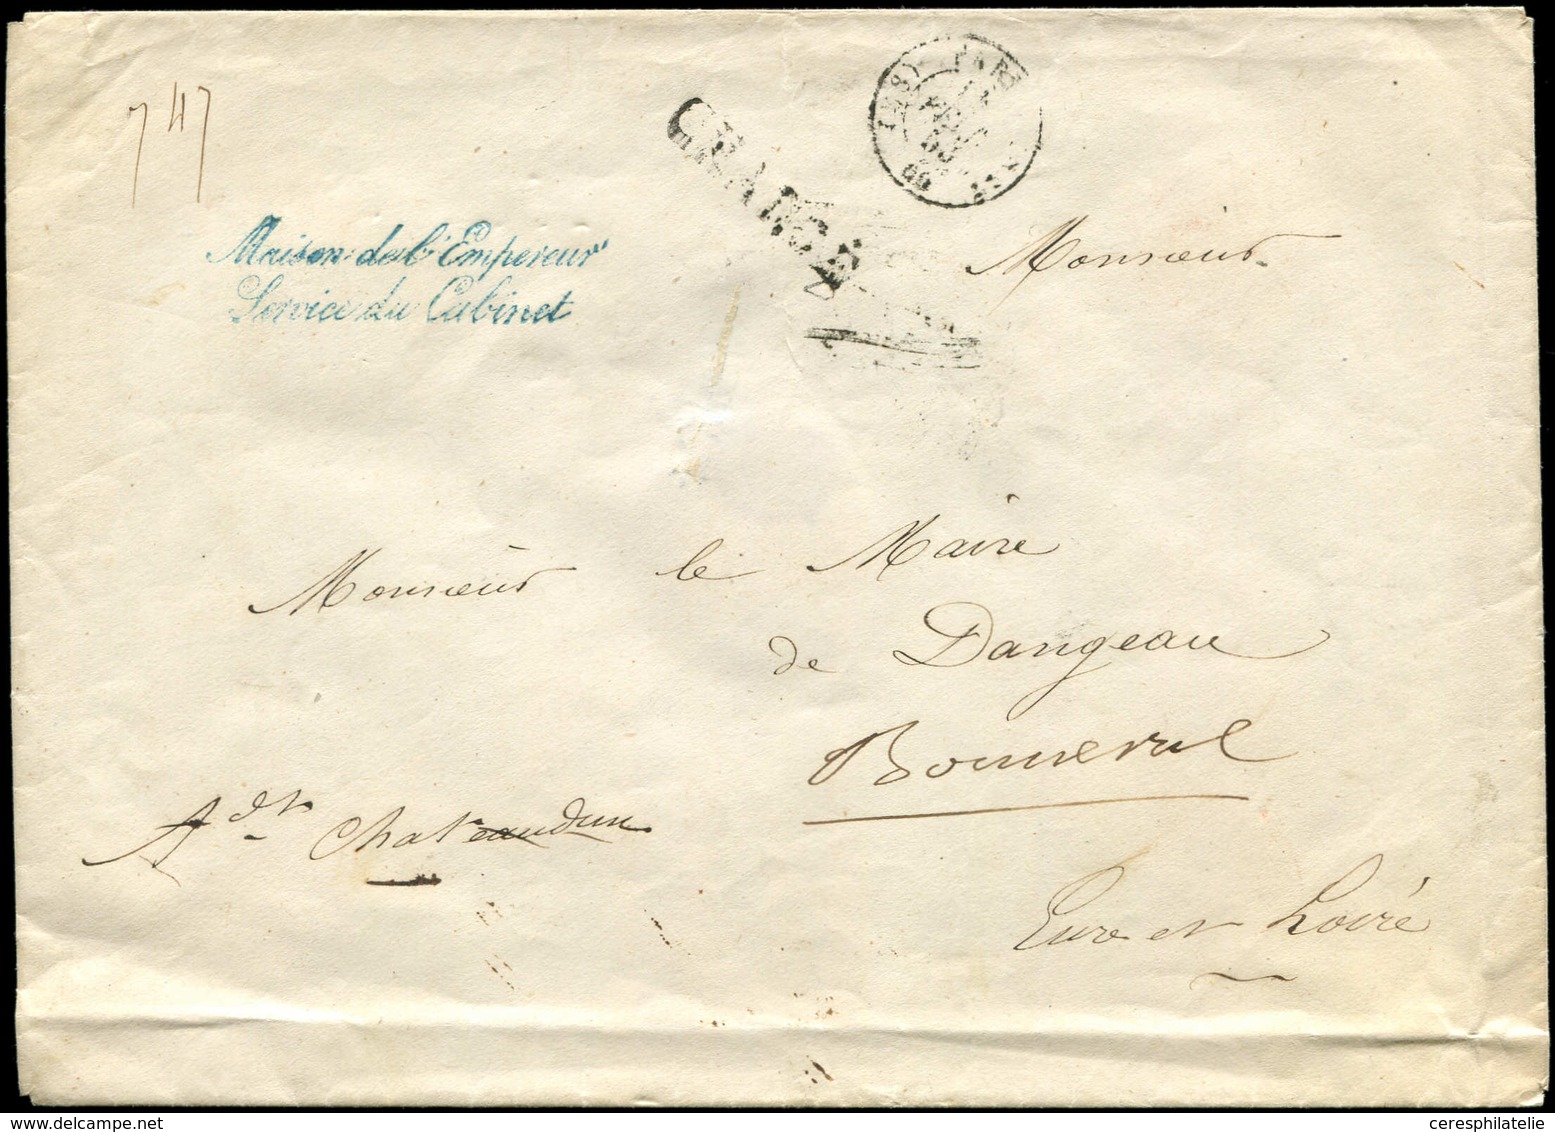 747
Maison de l'Empereur
Service du Cabinet
CHARGÉ
PARIS
60
Monsieur
Monsieur le Maire
de Dangeau
Bonneval
Adt Chateaudun
Eure et Loire
ceresphilatelie